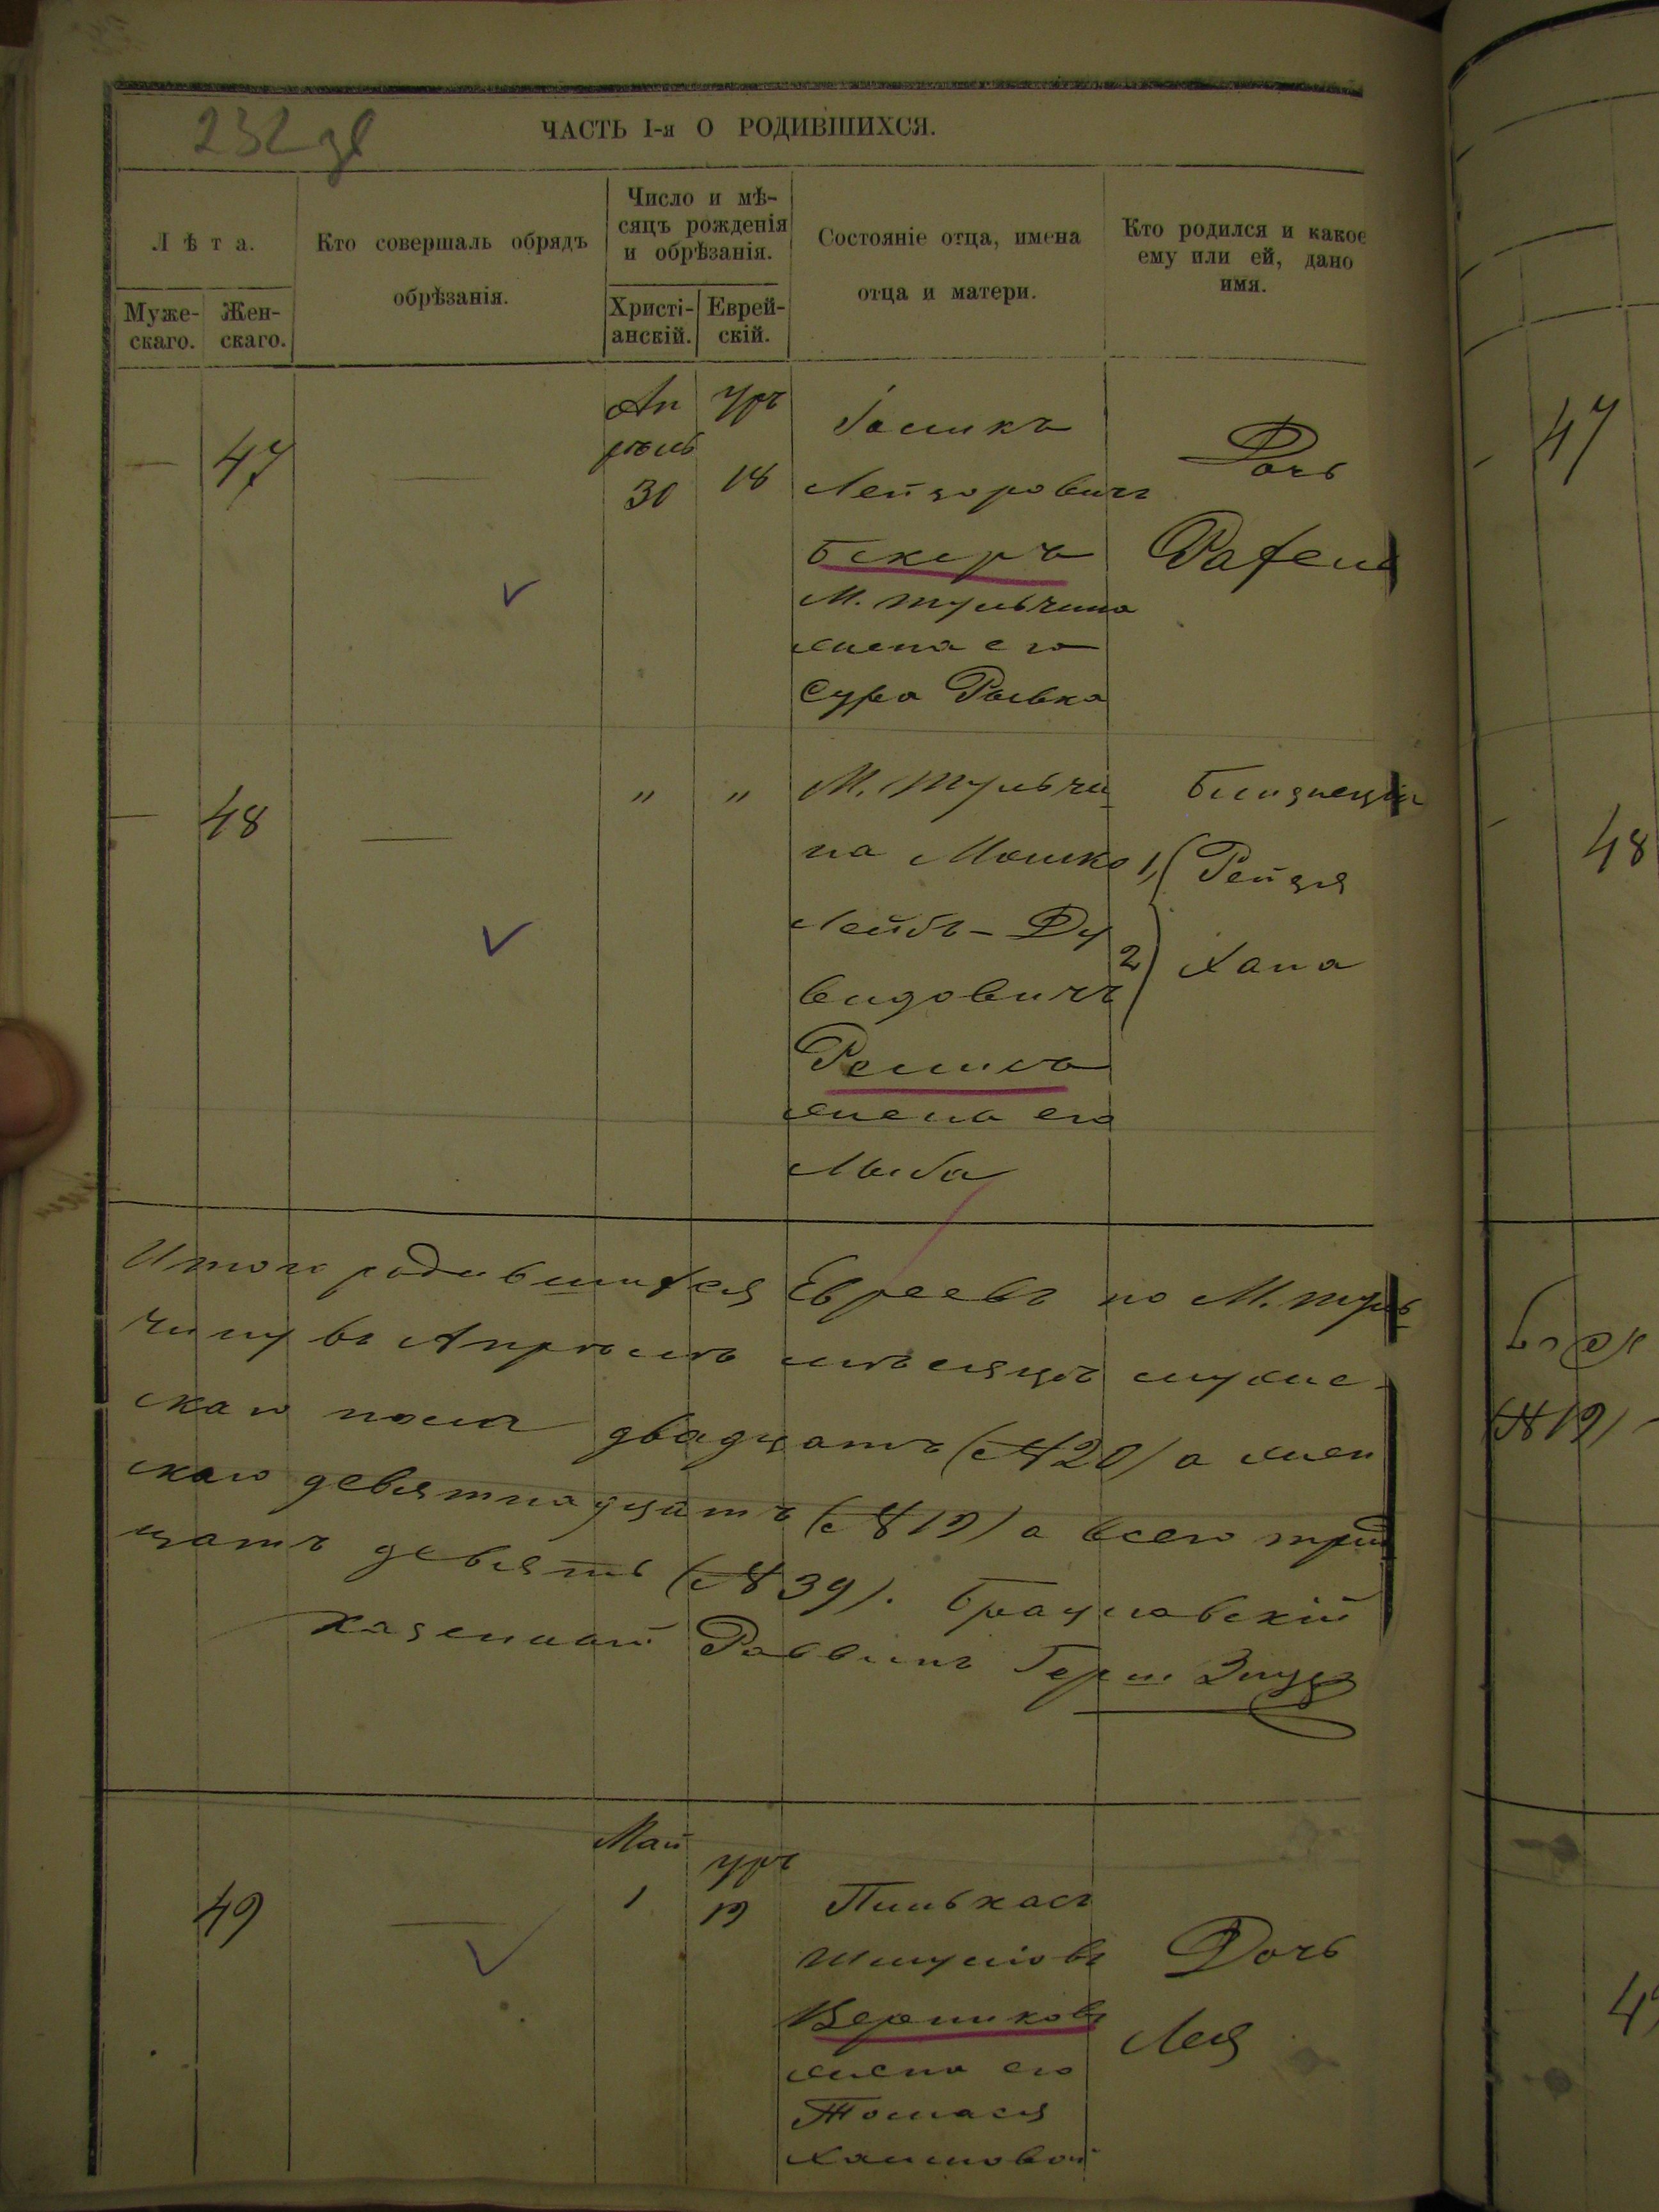 232
ЧАСТЬ I-я О РОДИВШИХСЯ.
Лѣта.
Муже-
скаго.
Жен-
скаго.
Кто совершалъ обрядъ
обрѣзанія.
Число и мѣ-
сяцъ рожденія
и обрѣзанія.
Христі-
анскій.
Еврей-
скій.
Состояніе отца, имена
отца и матери.
Кто родился и какое
ему или ей, дано
имя.
—
47
—
Ап
рѣль
30
Уръ
18
Іосикъ
Лейзоровичъ
Бекеръ
М. Тульчина
жена его
Сура Рывка
Дочь
Рахель
—
48
—
"
"
М. Тульчи
на Мошко
Лейбъ-Ду
видовичъ
жена его
Близнецы
1, Рейзя
2 Хана
Итого родившихся Евреевъ по М. Туль
чину въ Апрѣлѣ мѣсяцѣ муже-
скаго пола двадцать (№20) а жен
скаго девятнадцать (№19) а всего трид
цать девять (№39). Брацлавскій
Казенный Раввинъ Герш
49
—
Май
1
Уръ
19
Пинхасъ
Шмуліовъ
Верниковъ
жена его
Хаимовой
Дочь
Лея
47
48